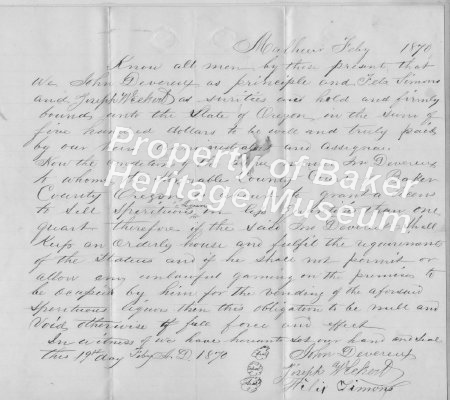 Malheur Feby 1870
Know all men by these present that
We John Devereux as principle and Felix Simons
and Joseph Weekert as surities are hold and firmly
bound unto the State of Oregon in the Sum of
five hundred dollars to be well and truly paid
by our and assigns.
Now the condition of Jno Devereux
to whom the County Court Baker
County Oregon to grant a licens
to Sell Spirituous in less than one
quart therefore if the Said Jno Devereux shall
Keep an Orderly house and fulfil the requirements
of the Statues and if he shall not permit or
allow any unlawful gaming on the premises to
be Occupied by him for the vending of the aforsaid
Spirituous liquors then this obligation to be null and
Void otherwise of full force and effect
In witness of we have hereunto Set our hand and Seal
this 19th day Feby A.D. 1870
John Devereux
Joseph Weekert
Simons
Property of Baker
Heritage Museum